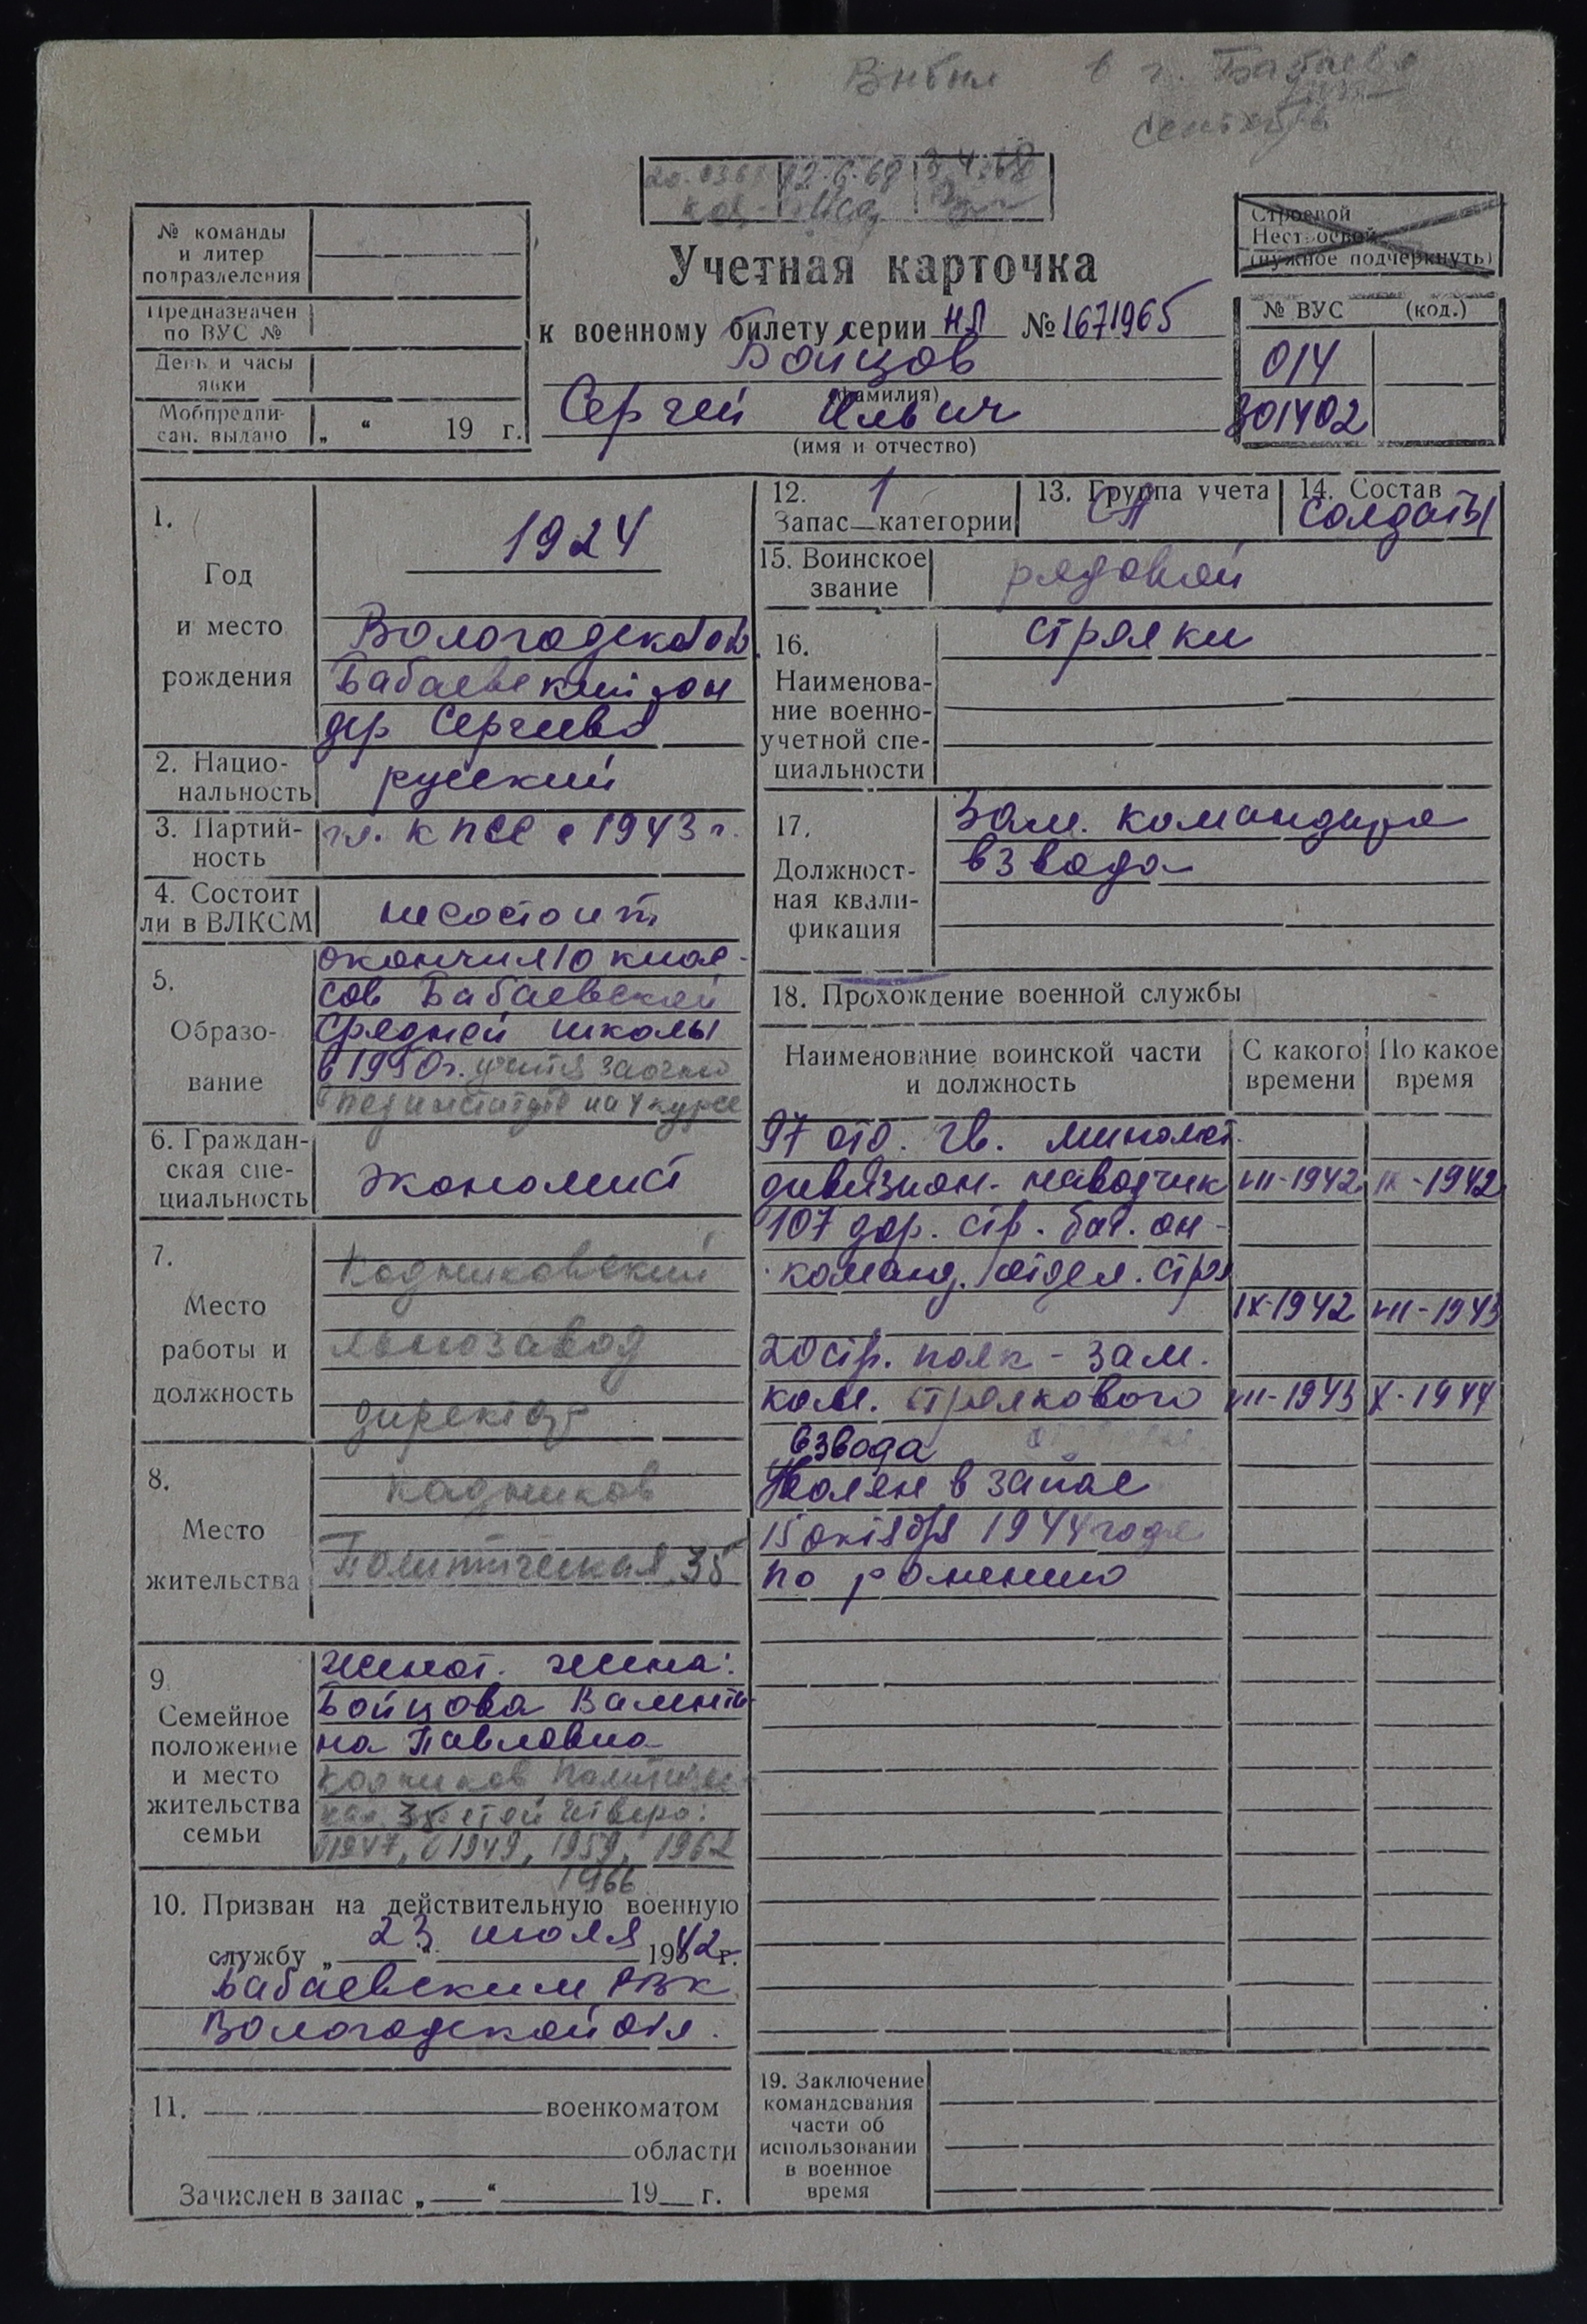 Выбыл в г. Бабаево
сентябрь
12.6.68
Учетная карточка
к военному билету серии НЛ № 1671965
Бойцов
(фамилия)
Сергей Ильич
(имя и отчество)
№ команды
и литер
подразделения
Предназначен
по ВУС №
День и часы
явки
Мобпредпи-
сан. выдано „ “ 19 г.
Строевой
Нестроевой
(нужное подчеркнуть)
№ ВУС (код.)
014
301402
1.
Год
и место
рождения
1924
Вологодская об
Бабаевский рон
дер Сергеево
2. Нацио-
нальность
русский
3. Партий-
ность
чл. КПСС с 1943 г.
4. Состоит
ли в ВЛКСМ
не состоит
5.
Образо-
вание
окончил 10 клас-
сов Бабаевской
средней школы
в 1950г. учится заочно
пединституте на 4 курсе
6. Граждан-
ская спе-
циальность
экономист
7.
Место
работы и
должность
Кадниковский
льнозавод
директор
8.
Место
жительства
Кадников
Политическая 35
9.
Семейное
положение
и место
жительства
семьи
женат. жена:
Бойцова Валенти-
на Павловна
Кадников Политичес-
кая 35 детей четверо:
1947, 1949, 1959, 1962
1966
10. Призван на действительную военную
службу „ 23 “ июля 1942 г.
Бабаевским РВК
Вологодской обл.
11. военкоматом
области
Зачислен в запас „ “ 19 г.
12. 1
Запас—категории
13. Группа учета
СА
14. Состав
солдаты
15. Воинское
звание
рядовой
16.
Наименова-
ние военно-
учетной спе-
циальности
стрелки
17.
Должност-
ная квали-
фикация
Зам. командира
взвода
18. Прохождение военной службы
Наименование воинской части
и должность
С какого
времени
По какое
время
97 отд. гв. миномет.
дивизион - наводчик VII-1942 IX-1942
107 дор. стр. бат. он-
команд. отдел. стрел
IX-1942 VII-1943
20 стр. полк - зам.
ком. стрелкового VII-1943 X-1944
взвода
Уволен в запас
15 октября 1944 года
по ранению
19. Заключение
командования
части об
использовании
в военное
время